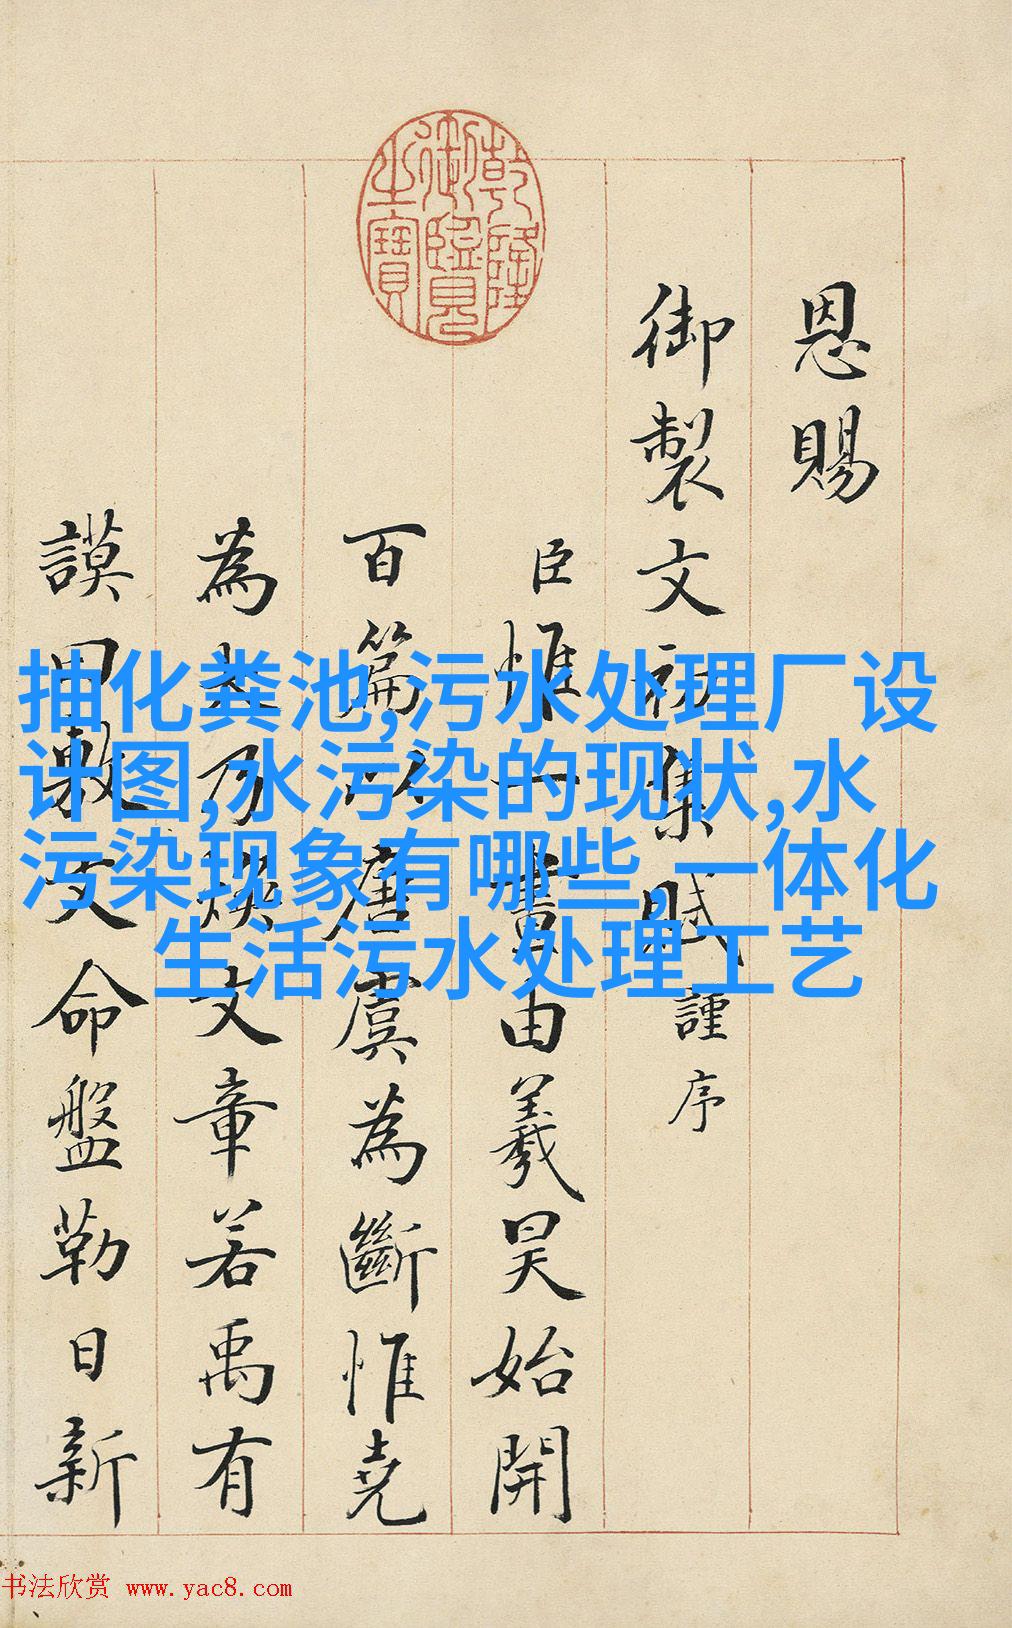 恩賜
御製文初集賦謹序
臣惟一畫由羲昊始開
百篇以唐虞為斷惟堯
為大乃煥文章若禹有
謨曰敷文命盤勒日新
乾隆御覽之寶
抽化粪池,污水处理厂设
计图,水污染的现状,水
污染现象有哪些,一体化
生活污水处理工艺
书法欣赏 www.yac8.com